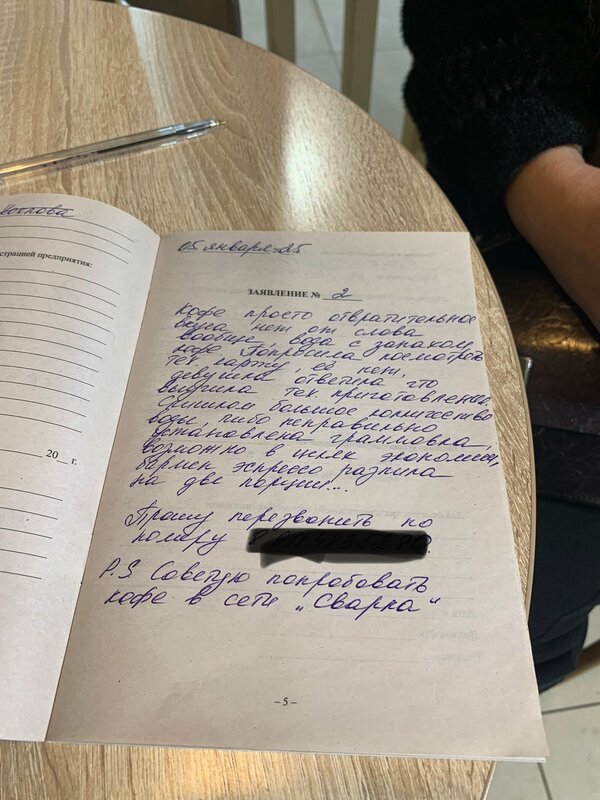 нистрацией предприятия:
20__ г.
05 января 25
ЗАЯВЛЕНИЕ № 2
Кофе просто отвратительное
вкуса нет от слова
вообще, вода с запахом
кофе. Попросила посмотреть
тех карту, её нет,
девушка ответила что
выучила тех. приготовления,
слишком большое количество
воды, либо неправильно
установлена граммовка,
возможно в целях экономии,
бармен эспрессо разлила
на две порции...
Прошу перезвонить по
номеру
P.S Советую попробовать
кофе в сети „Сварка“
– 5 –